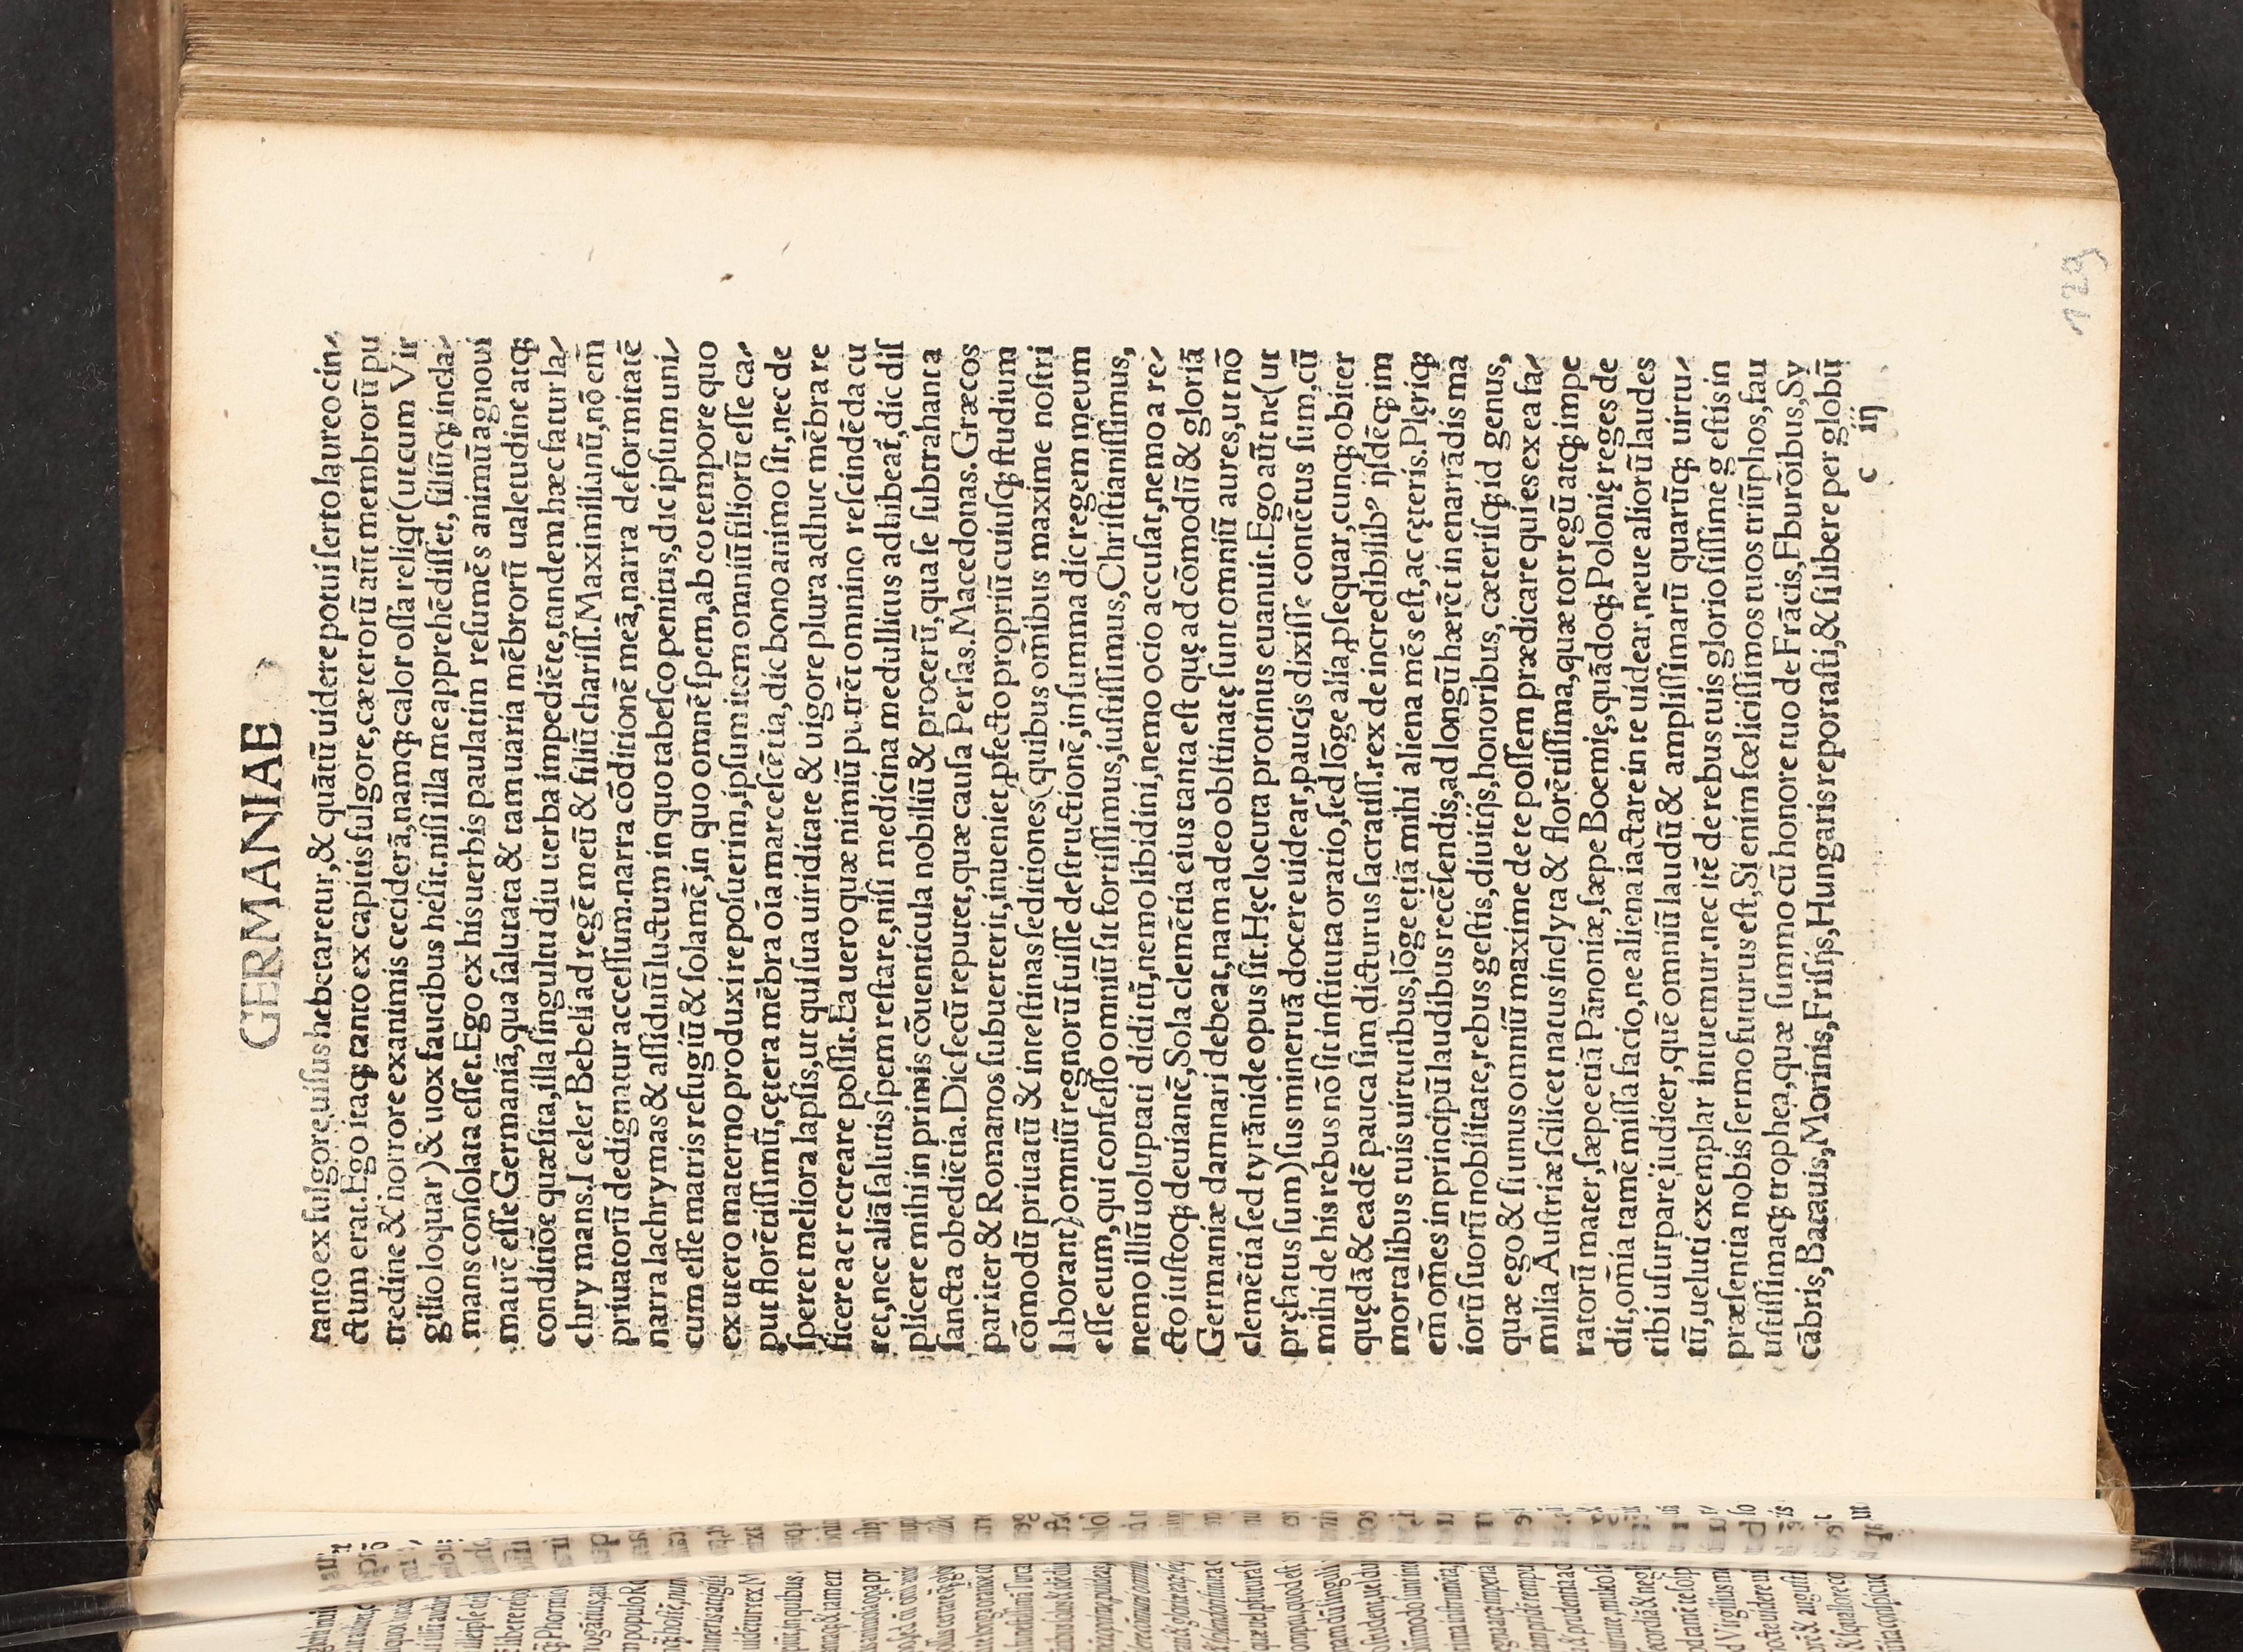 GERMANIAE
tanto ex fulgore, uisus hebetaretur, & quātū uidere potui serto laureo cin⸗
ctum erat. Ego itaq; tanto ex capitis fulgore, cæterorū aūt membrorū pu
tredine & horrore exanimis ceciderā, namq; calor ossa reliqt (ut cum Vir
gilio loquar) & uox faucibus hesit. nisi illa me apprehēdisset, filiūq; incla⸗
mans consolata esset. Ego ex his uerbis paulatim resumēs animū agnoui
matrē esse Germaniā, qua salutata & tam uaria mēbrorū ualetudine atq;
conditiōe quæsita, illa singultu diu uerba impediēte, tandem hæc fatur la⸗
chrymans. I celer Bebeli ad regē meū & filiū chariss. Maximilianū, nō em̄
priuatorū dedignatur accessum. narra cōditionē meā, narra deformitatē
narra lachrymas & assiduū luctum in quo tabesco penitus, dic ipsum uni⸗
cum esse matris refugiū & solamē, in quo omnē spem, ab eo tempore quo
ex utero materno produxi reposuerim, ipsum item omniū filiorū esse ca⸗
put florētissimū, cętera mēbra oīa marcescētia, dic bono animo sit, nec de
speret meliora lapsis, ut qui sua uiriditate & uigore plura adhuc mēbra re
ficere ac recreare possit. Ea uero quæ nimiū putrēt omnino rescindēda cu
ret, nec aliā salutis spem restare, nisi medicina medullitus adhibeat̄, dic dis
plicere mihi in primis cōuenticula nobiliū & procerū, qua se subtrahant a
sancta obediētia. Dic secū reputet, quæ causa Persas. Macedonas. Græcos
pariter & Romanos subuerterit, inueniet, ꝓfecto propriū cuiusq; studium
cōmodū priuatū & intestinas seditiones (quibus om̄ibus maxime nostri
laborant) omniū regnorū fuisse destructionē, in summa dic regem meum
esse eum, qui confesso omniū sit fortissimus, iustissimus, Christianissimus,
nemo illū uoluptati dìditū, nemo libidini, nemo ocio accusat, nemo a re⸗
cto iustoq; deuiantē, Sola clemētia eius tanta est quę ad cōmodū & gloriā
Germaniæ damnari debeat, nam adeo obstinatę sunt omniū aures, ut nō
clemētia sed tyrānide opus sit. Hęc locuta protinus euanuit. Ego aūt ne (ut
pręfatus sum) sus mineruā docere uidear, paucis dixisse contētus sum, cū
mihi de his rebus nō sit instituta oratio, sed lōge alia, ꝓsequar, cunq; obiter
quędā & eadē pauca sim dicturus sacratiss. rex de incredibilibꝰ ijsdēq; im
mortalibus tuis uirtutibus, lōge etiā mihi aliena mēs est, ac ceteris. Plęriq;
em̄ om̄es in principū laudibus recēsendis, ad longū hærēt in enarrādis ma
iorū suorū nobilitate, rebus gestis, diuitijs, honoribus, cæterisq; id genus,
quæ ego & si unus omniū maxime de te possem prædicare qui es ex ea fa⸗
milia Austriæ scilicet natus inclyta & florētissima, quæ tot regū atq; impe
ratorū mater, sæpe etiā Pānoniæ, sæpe Boemię, quādoq; Polonię reges de
dit, om̄ia tamē missa facio, ne aliena iactare in te uidear, neue aliorū laudes
tibi usurpare iudicer, quē omniū laudū & amplissimarū quarūq; uirtu⸗
tū, ueluti exemplar intuemur. nec itē de rebus tuis gloriosissime gestis in
præsentia nobis sermo futurus est, Si enim fœlicissimos tuos triūphos, fau
ustissimaq; trophea, quæ summo cū honore tuo de Frācis, Eburōibus, Sy
cābris, Batauis, Morinis, Frisijs, Hungaris reportasti, & si libere per globū
c iij
129